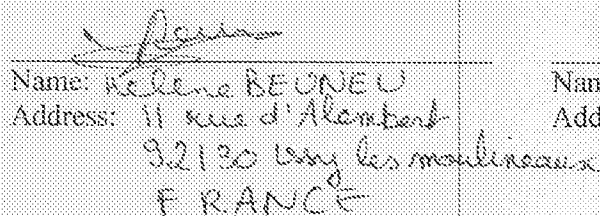 Name: Helene BEUNEU Nam
Address: 11 rue d'Alembert Add
92130 Issy les moulineaux
FRANCE